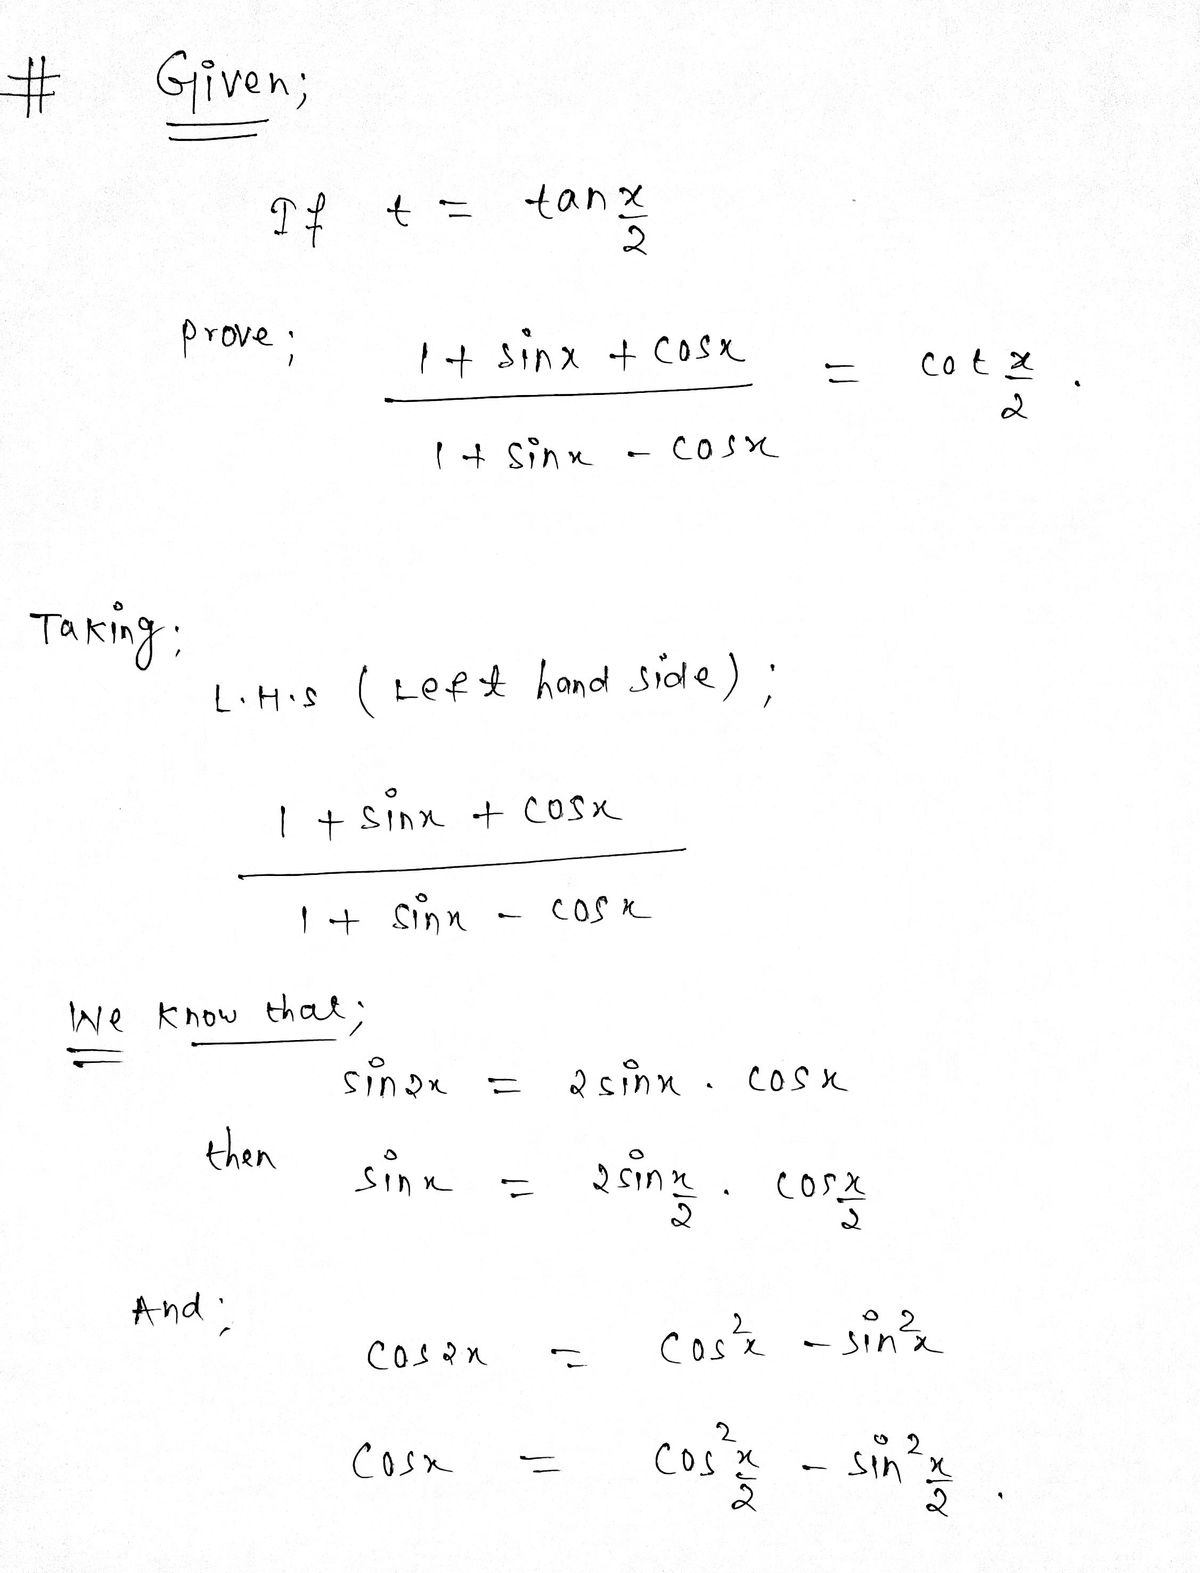 # Given;
If t = tan x/2
prove; (1 + sinx + cosx)/(1 + sinx - cosx) = cot x/2 .
Taking;
L.H.S (Left hand side);
1 + sinx + cosx
1 + sinx - cosx
We know that;
sin2x = 2sinx . cosx
then sinx = 2sin x/2 . cos x/2
And;
cos2x = cos²x - sin²x
cosx = cos² x/2 - sin² x/2 .